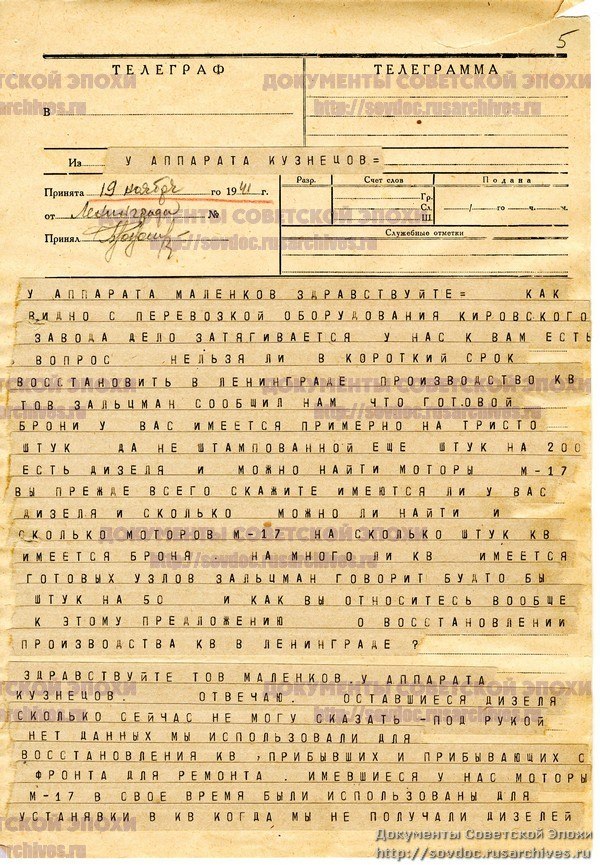 5
ТЕЛЕГРАФ
ТЕЛЕГРАММА
ДОКУМЕНТЫ СОВЕТСКОЙ ЭПОХИ
http://sovdoc.rusarchives.ru
В
Из У АППАРАТА КУЗНЕЦОВ=
Принята 19 ноября го 1941 г.
от Ленинграда №
Принял
Разр. Счет слов Подана
Гр.
Сл. / го ч. ч.
Ш.
Служебные отметки
У АППАРАТА МАЛЕНКОВ ЗДРАВСТВУЙТЕ= КАК
ВИДНО С ПЕРЕВОЗКОЙ ОБОРУДОВАНИЯ КИРОВСКОГО
ЗАВОДА ДЕЛО ЗАТЯГИВАЕТСЯ У НАС К ВАМ ЕСТЬ
ВОПРОС НЕЛЬЗЯ ЛИ В КОРОТКИЙ СРОК
ВОССТАНОВИТЬ В ЛЕНИНГРАДЕ ПРОИЗВОДСТВО КВ
ТОВ ЗАЛЬЦМАН СООБЩИЛ НАМ ЧТО ГОТОВОЙ
БРОНИ У ВАС ИМЕЕТСЯ ПРИМЕРНО НА ТРИСТО
ШТУК ДА НЕ ШТАМПОВАННОЙ ЕЩЕ ШТУК НА 200
ЕСТЬ ДИЗЕЛЯ И МОЖНО НАЙТИ МОТОРЫ М-17
ВЫ ПРЕЖДЕ ВСЕГО СКАЖИТЕ ИМЕЮТСЯ ЛИ У ВАС
ДИЗЕЛЯ И СКОЛЬКО МОЖНО ЛИ НАЙТИ И
СКОЛЬКО МОТОРОВ М-17 НА СКОЛЬКО ШТУК КВ
ИМЕЕТСЯ БРОНЯ . НА МНОГО ЛИ КВ ИМЕЕТСЯ
ГОТОВЫХ УЗЛОВ ЗАЛЬЦМАН ГОВОРИТ БУДТО БЫ
ШТУК НА 50 И КАК ВЫ ОТНОСИТЕСЬ ВООБЩЕ
К ЭТОМУ ПРЕДЛОЖЕНИЮ О ВОССТАНОВЛЕНИИ
ПРОИЗВОДСТВА КВ В ЛЕНИНГРАДЕ ?
ЗДРАВСТВУЙТЕ ТОВ МАЛЕНКОВ.У АППАРАТА
КУЗНЕЦОВ. ОТВЕЧАЮ. ОСТАВШИЕСЯ ДИЗЕЛЯ
СКОЛЬКО СЕЙЧАС НЕ МОГУ СКАЗАТЬ -ПОД РУКОЙ
НЕТ ДАННЫХ МЫ ИСПОЛЬЗОВАЛИ ДЛЯ
ВОССТАНОВЛЕНИЯ КВ ,ПРИБЫВШИХ И ПРИБЫВАЮЩИХ С
ФРОНТА ДЛЯ РЕМОНТА . ИМЕВШИЕСЯ У НАС МОТОРЫ
М-17 В СВОЕ ВРЕМЯ БЫЛИ ИСПОЛЬЗОВАНЫ ДЛЯ
УСТАНЯВКИ В КВ КОГДА МЫ НЕ ПОЛУЧАЛИ ДИЗЕЛЕЙ
Документы Советской Эпохи
http://sovdoc.rusarchives.ru